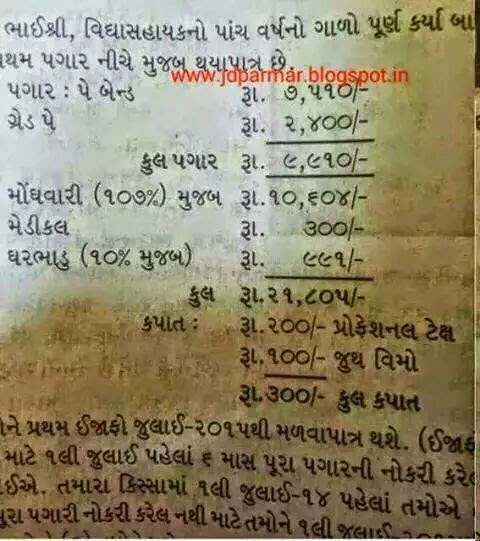 ભાઈશ્રી, વિદ્યાસહાયકનો પાંચ વર્ષનો ગાળો પૂર્ણ કર્યા બા
થમ પગાર નીચે મુજબ થવાપાત્ર છે.
www.jdparmar.blogspot.in
પગાર : પે બેન્ડ રૂા. ૭,૫૧૦/-
ગ્રેડ પે રૂા. ૨,૪૦૦/-
કુલ પગાર રૂા. ૯,૯૧૦/-
મોંઘવારી (૧૦૭%) મુજબ રૂા.૧૦,૬૦૪/-
મેડીકલ રૂા. ૩૦૦/-
ઘરભાડુ (૧૦% મુજબ) રૂા. ૯૯૧/-
કુલ રૂા.૨૧,૮૦૫/-
કપાત : રૂા.૨૦૦/- પ્રોફેશનલ ટેક્ષ
રૂા.૧૦૦/- જુથ વિમો
રૂા.૩૦૦/- કુલ કપાત
ોને પ્રથમ ઈજાફો જુલાઈ-૨૦૧૫થી મળવાપાત્ર થશે. (ઈજાફ
માટે ૧લી જુલાઈ પહેલાં ૬ માસ પૂરા પગારની નોકરી કરેલ
ઈએ. તમારા કિસ્સામાં ૧લી જુલાઈ-૧૪ પહેલાં તમોએ
પૂરા પગારી નોકરી કરેલ નથી માટે તમોને ૧લી જુલાઈ-૨૦૧૫